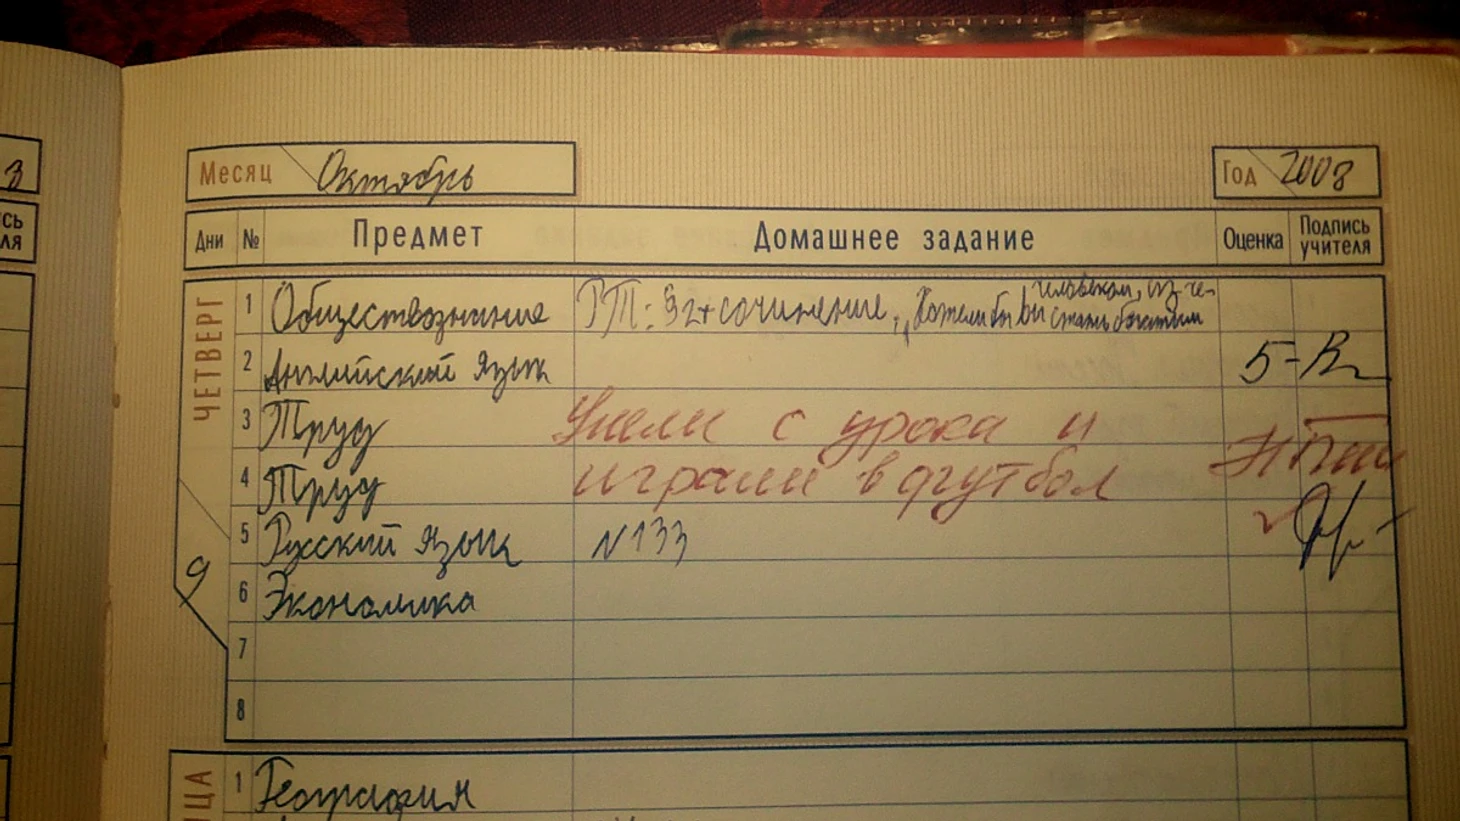 Месяц Октябрь Год 2008
Дни № Предмет Домашнее задание Оценка Подпись учителя
ЧЕТВЕРГ
9
1 Обществознание РТ: 92+сочинение, „Хотели бы вы стать богатым
человеком, из-че-
2 Английский язык 5-
3 Труд Ушли с урока и
4 Труд играли в футбол
5 Русский язык N133
6 Экономика
7
8
1 География
3